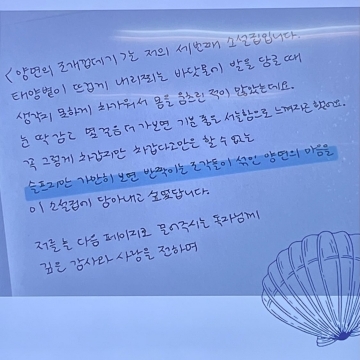 <양면의 조개껍데기>는 저의 세번째 소설집입니다.
태양볕이 뜨겁게 내리쬐는 바닷물에 발을 담글 때
생각지 못하게 차가워서 몸을 움츠린 적이 많았는데요.
눈 딱 감고 몇 걸음 더 가보면 기분 좋은 서늘함으로 느껴지곤 했어요.
꼭 그렇게 차갑지만 차갑다고만은 할 수 없는
슬프지만 가만히 보면 반짝이는 조각들이 섞인 양면의 마음을
이 소설집에 담아내고 싶었답니다.
저를 늘 다음 페이지로 밀어주시는 독자님께
깊은 감사와 사랑을 전하며